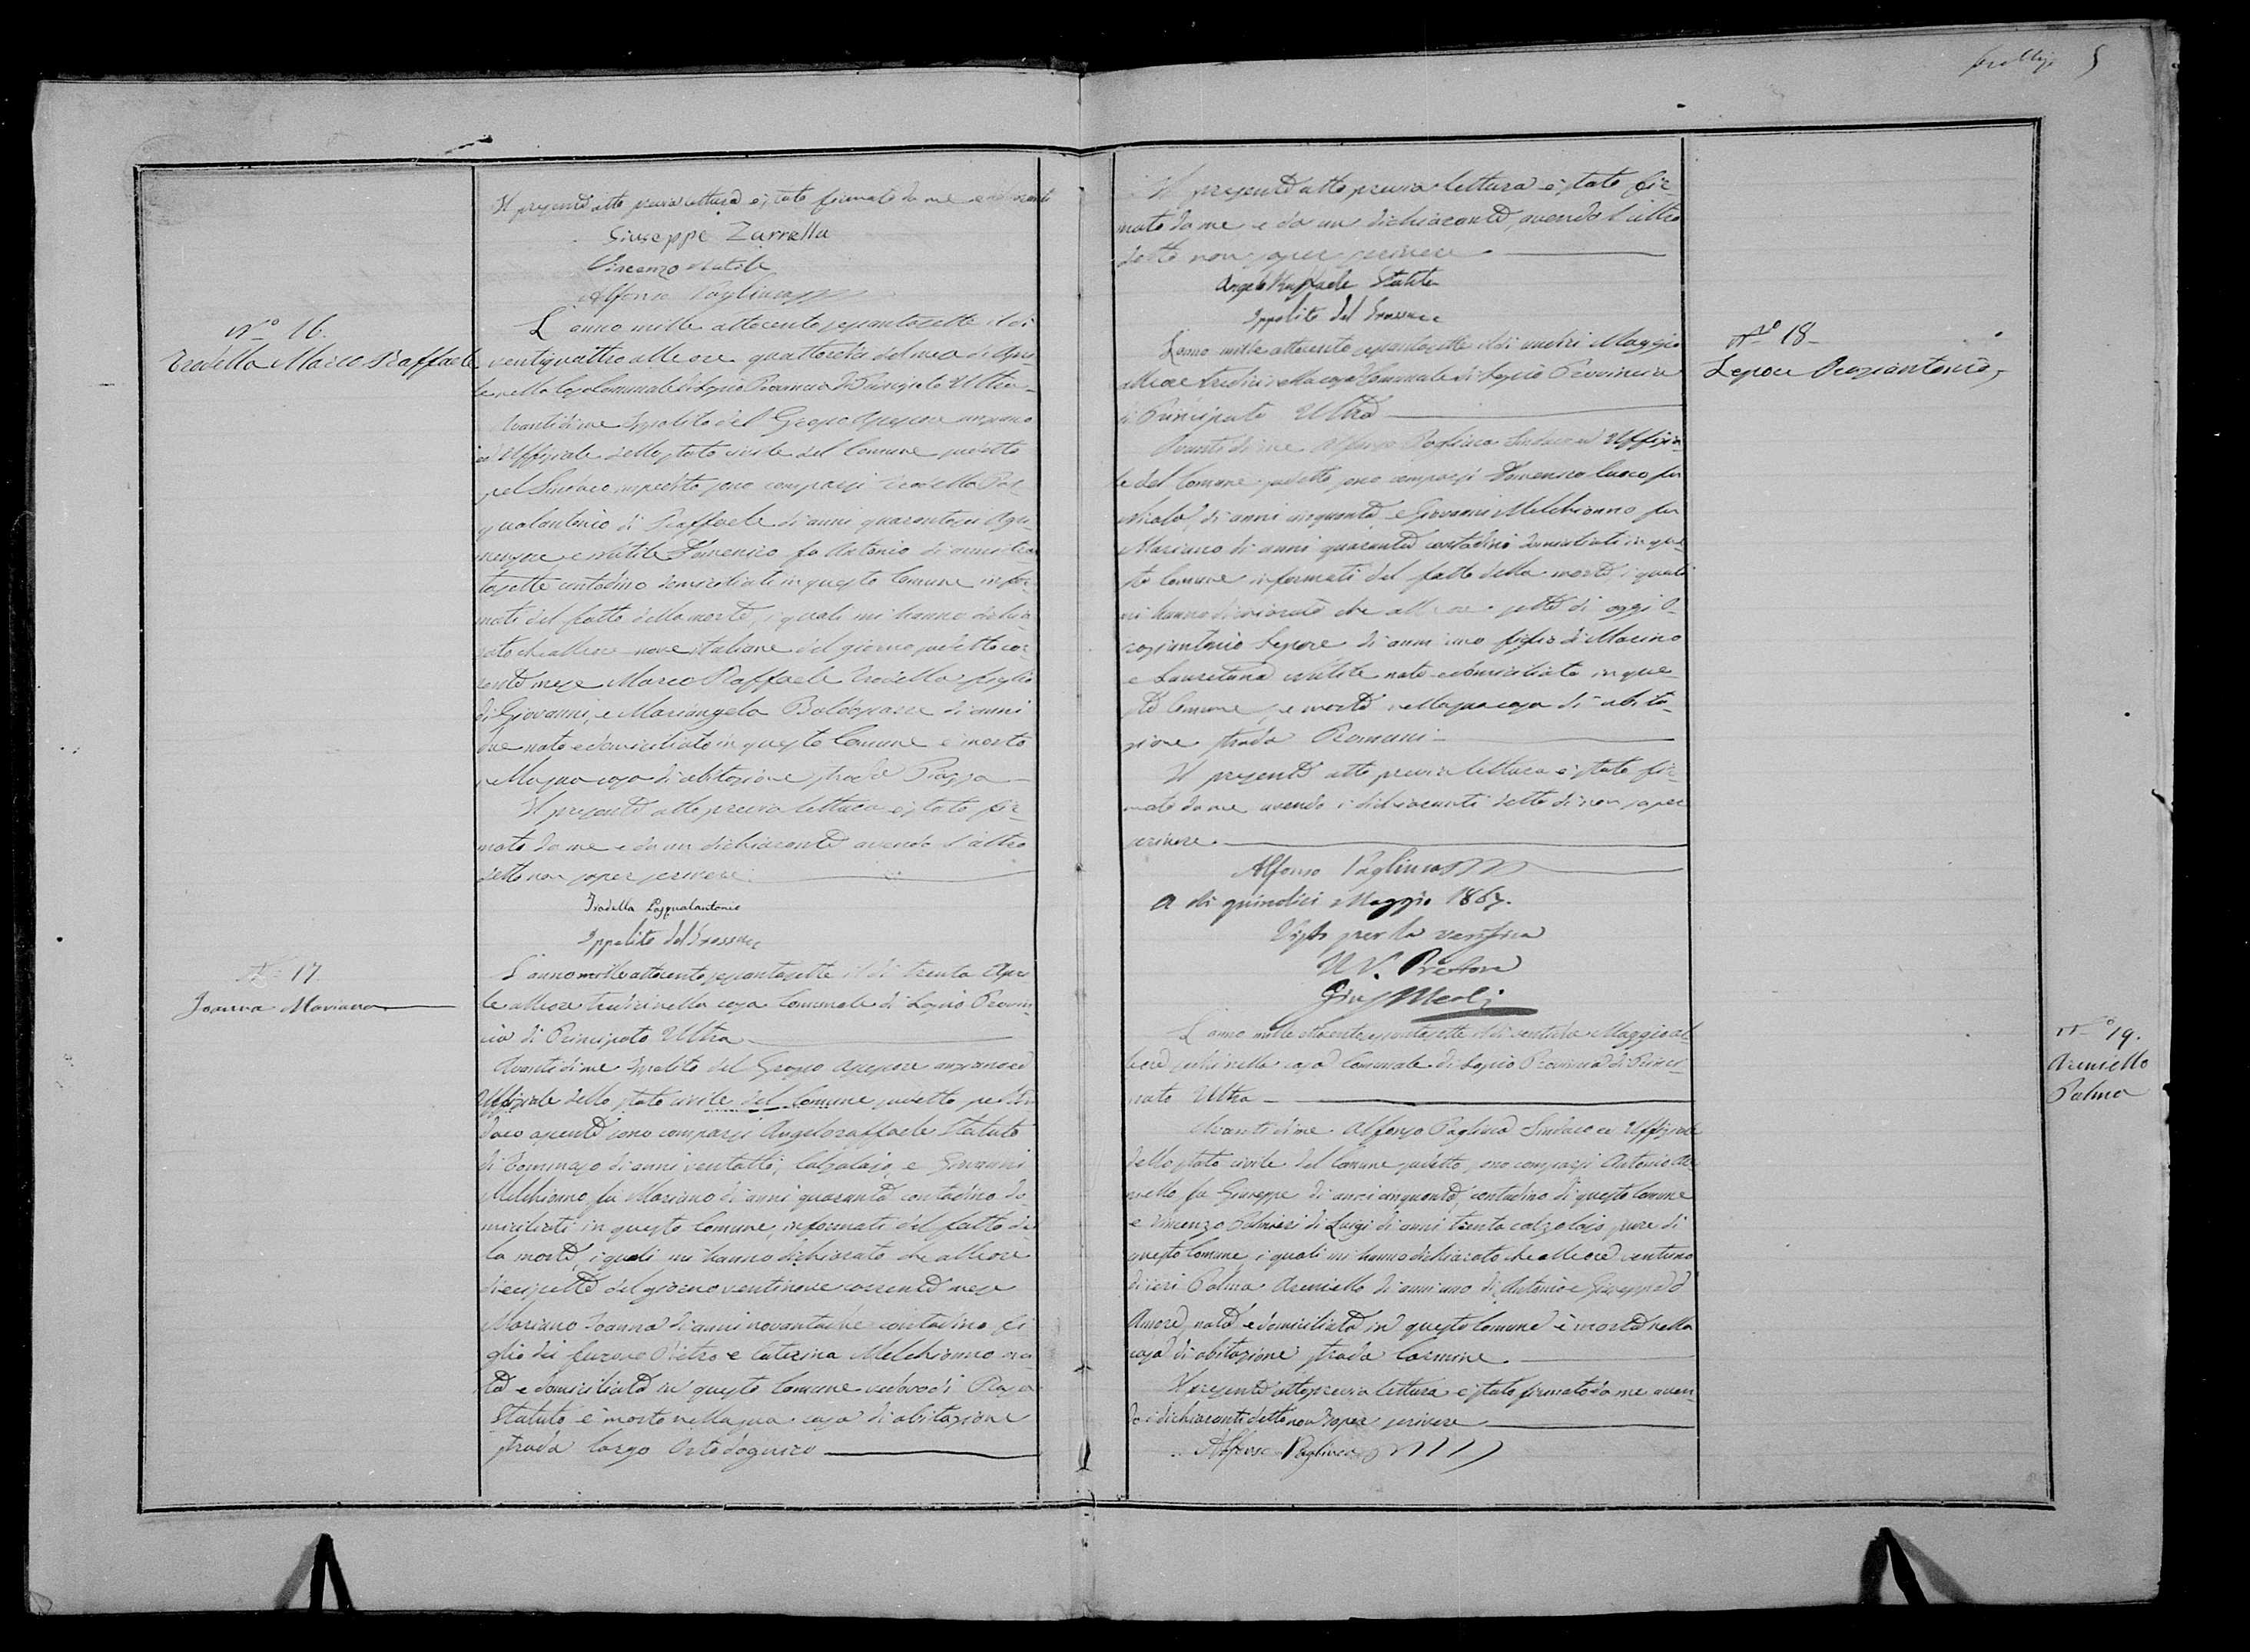 5
Il presente atto previa lettura è stato firmato da me e
Giuseppe Zarrella
Vincenzo Natile
Alfonso Pagliuca
N.º 16.
Trodella Marco Raffaele
L'anno mille ottocento sessantasette il dì
ventiquattro alle ore quattordici del mese di Apri-
le nella Casa Comunale di Lapio Provincia di Principato Ultra
Avanti di me Ippolito del Grosso Assessore anziano
ed Uffiziale dello stato civile del Comune suddetto
pel Sindaco impedito sono comparsi Trodella Pas-
qualantonio di Raffaele di anni quarantasei
e Natile Domenico fu Antonio di anni tren
tasette contadino domiciliati in questo Comune infor-
mati del fatto della morte, i quali mi hanno dichia
rato che alle ore nove italiane del giorno suddetto cor
rente mese Marco Raffaele Trodella figlio
di Giovanni, e Mariangela Baldassarre di anni
due nato e domiciliato in questo Comune è morto
nella sua casa di abitazione strada Piazza
Il presente atto previa lettura è stato fir-
mato da me e da un dichiarante avendo l'altro
detto non saper scrivere
Trodella Pasqualantonio
Ippolito del Grosso
N.º 17.
Joanna Mariano
L'anno mille ottocento sessantasette il dì trenta Apri
le alle ore tredici nella casa Comunale di Lapio Provin-
cia di Principato Ultra
Avanti di me Ippolito del Grosso Assessore anziano ed
Uffiziale dello stato civile del Comune suddetto pel Sin
daco assente sono comparsi Angeloraffaele Statuto
di Tommaso di anni ventotto, Calzolajo, e Giovanni
Melchionno fu Mariano di anni quaranta contadino do
miciliati in questo Comune, informati del fatto del
la morte, i quali mi hanno dichiarato che alle ore
diecisette del giorno ventinove corrente mese
Mariano Joanna di anni novantadue contadino fi
glio dei furono Pietro e Caterina Melchionno na
to e domiciliato in questo Comune vedovo di Rosa
Statuto è morto nella sua casa di abitazione
strada largo
Il presente atto previa lettura è stato fir-
mato da me e da un dichiarante, avendo l'altro
detto non saper scrivere
Angelo Raffaele Statuto
Ippolito del Grosso
N.º 18
Lepore Oraziantonio
L'anno mille ottocento sessantasette il dì undici Maggio
alle ore tredici nella casa Comunale di Lapio Provincia
di Principato Ultra
Avanti di me Alfonso Pagliuca Sindaco ed Uffizia-
le del Comune suddetto sono comparsi Domenico fu
Nicola, di anni cinquanta e Giovanni Melchionno fu
Mariano di anni quaranta contadini domiciliati in que-
sto Comune informati del fatto della morte, i quali
mi hanno dichiarato che alle ore sette di oggi O-
raziantonio Lepore di anni uno figlio di Marino
e Lauretana Natile nato e domiciliato in que-
sto Comune, è morto nella sua casa di abita-
zione strada Romani
Il presente atto previa lettura è stato fir-
mato da me avendo i dichiaranti detto di non saper
scrivere
Alfonso Pagliuca
A dì quindici Maggio 1867.
Visto per la verifica
Il V. Pretore
N.º 19.
Areniello
Palma
L'anno mille ottocento sessantasette il dì ventidue Maggio al
le ore sedici nella casa Comunale di Lapio Provincia di Princi-
pato Ultra
Avanti di me Alfonso Pagliuca Sindaco ed Uffiziale
dello stato civile del Comune suddetto sono comparsi Antonio Are
niello fu Giuseppe di anni cinquanta, contadino di questo Comune
e Vincenzo Palmieri di Luigi di anni trenta calzolajo pure di
questo Comune, i quali mi hanno dichiarato che alle ore ventuno
di ieri Palma Areniello di anni uno di Antonio e Giuseppa d'
Amore, nata e domiciliata in questo Comune è morta nella
casa di abitazione strada Carmine
Il presente atto previa lettura è stato firmato da me aven-
do i dichiaranti detto non saper scrivere
Alfonso Pagliuca